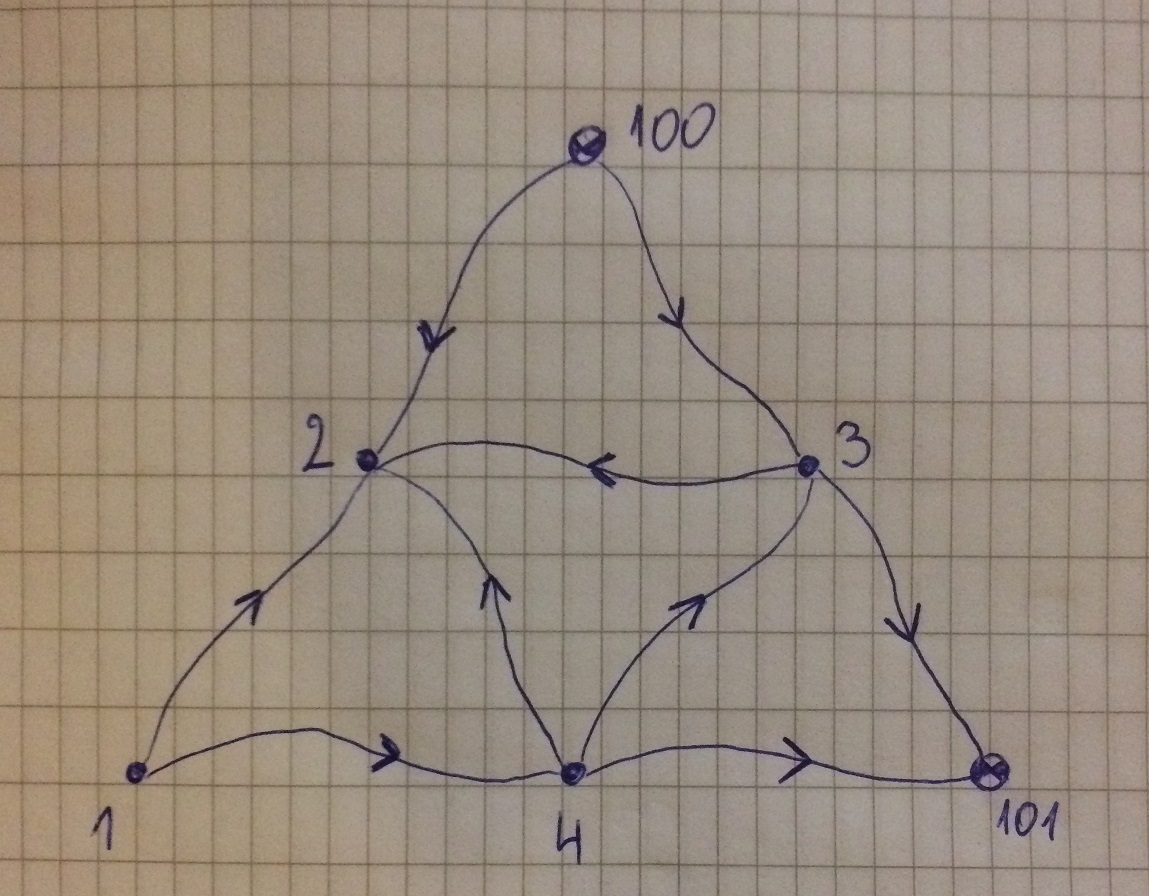 100
2
3
1
4
101